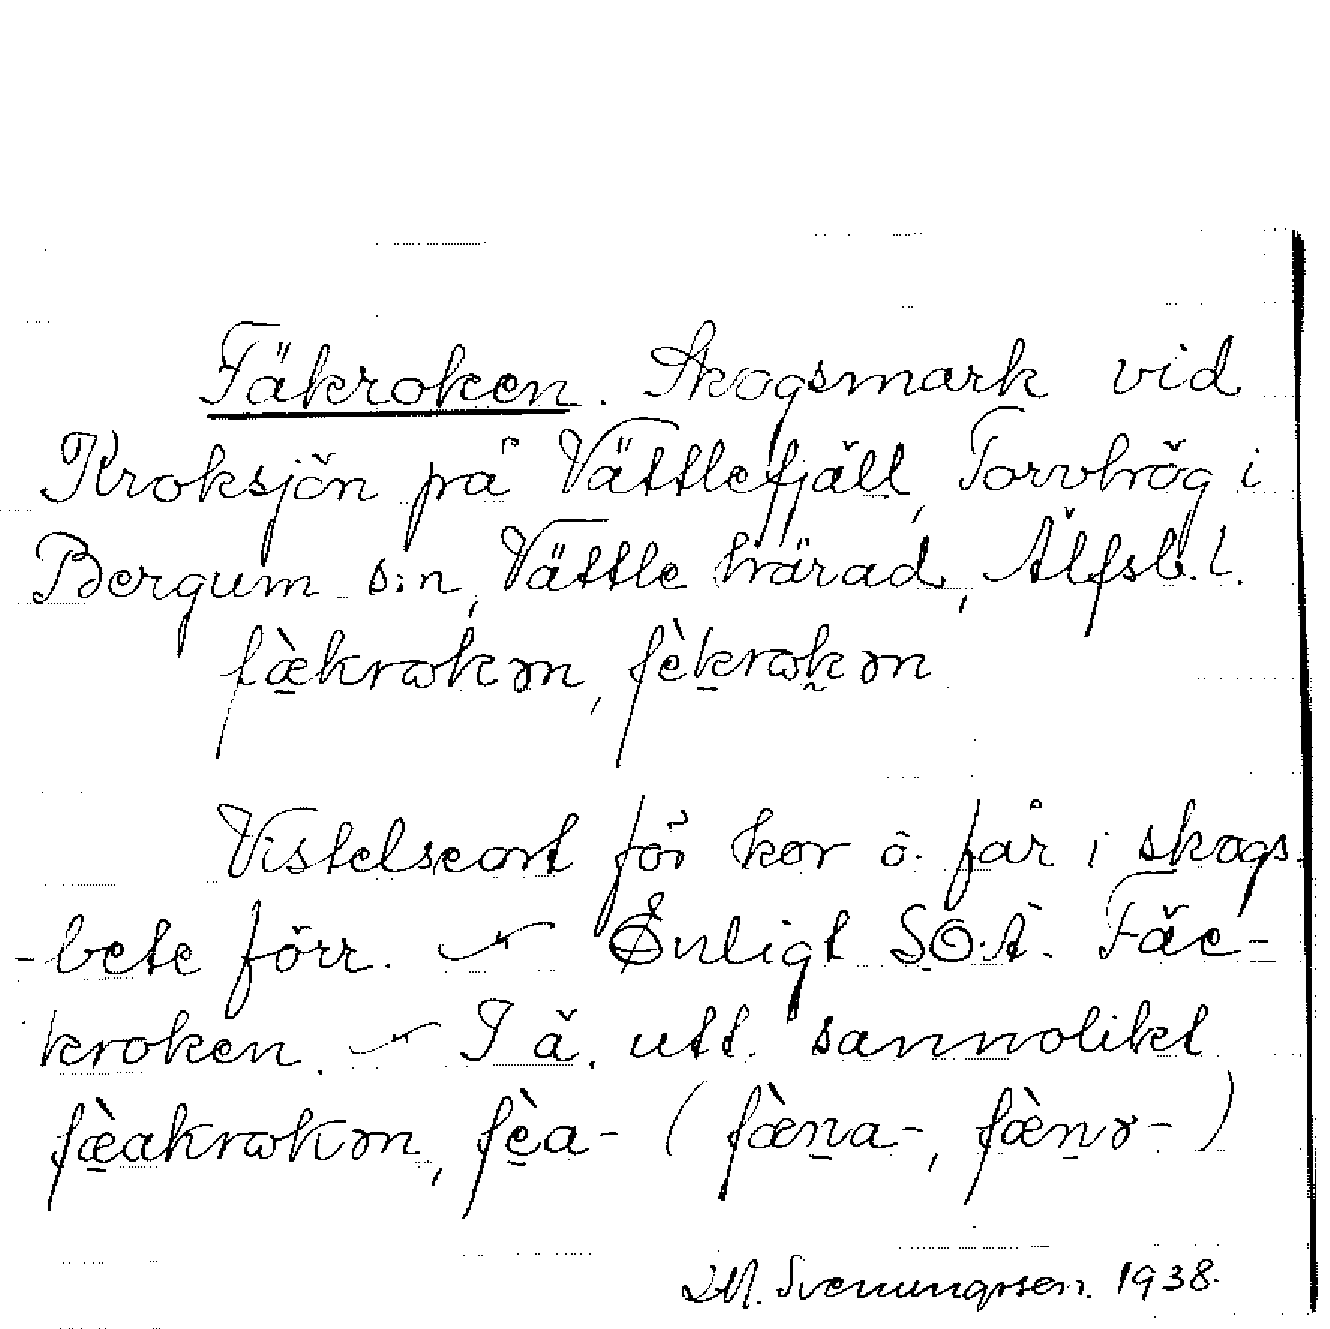 Fäkroken. Skogsmark vid
Kroksjön på Vättlefjäll, Torvhög i
Bergum s:n, Vättle härad, Älfsb. l.
fæ̀krokən, fèkrokən
Vistelseort för kor o. får i skogs-
-bete förr. — Enligt SOÄ. Fäe-
kroken. — I ä. utt. sannolikt
fæ̀akrokən, fèa- (fæ̀na-, fæ̀nə-)
Svenungsson. 1938.